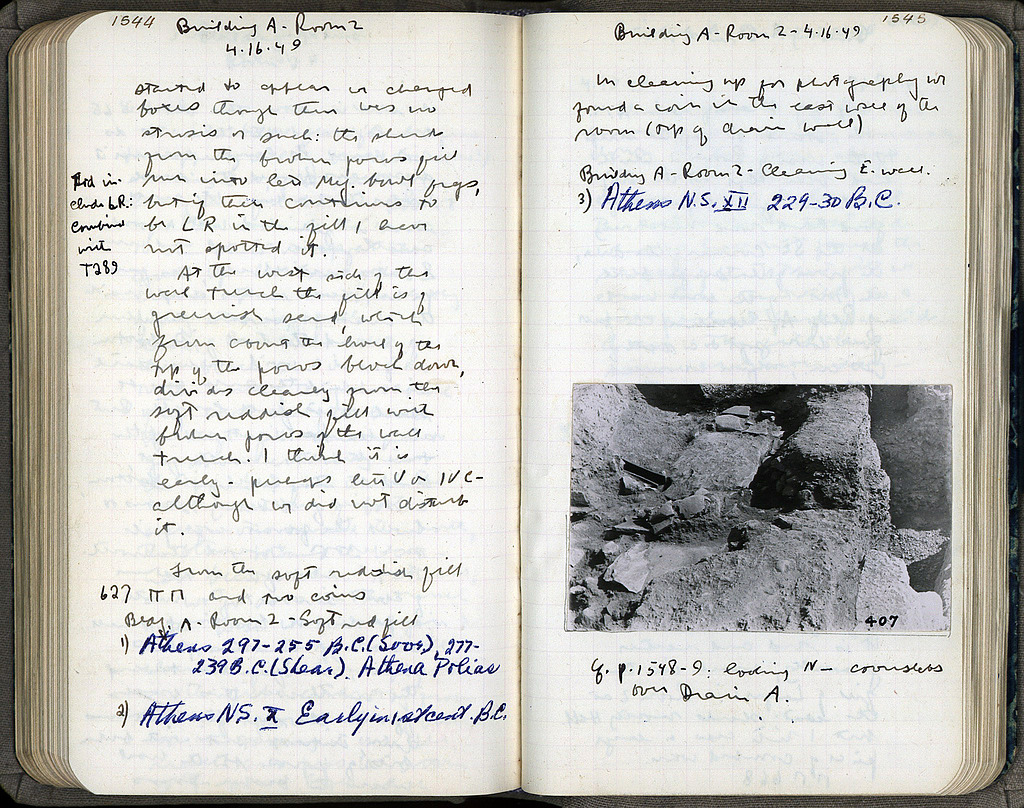 1544
Building A - Room 2
4.16.49
started to appear in changed
boxes though there was no
strosis as such: the sherds
from the broken poros fill
run into late Meg. bowl frgs,
but if there continues to
be LR in the fill, I have
not spotted it.
Did in-
clude LR:
Combined
with
T289
At the west side of the
wall trench the fill is of
greenish sand, which
from about the level of the
top of the poros block down,
divides cleanly from the
soft reddish fill with
broken poros of the wall
trench. I think it is
early - perhaps late V or IV C -
although we did not disturb
it.
From the soft reddish fill
627 ΠΠ and two coins
Bldg. A - Room 2 - Soft red fill
1) Athens 297-255 B.C. (Svor.), 277-
239 B.C. (Shear). Athena Polias
2) Athens N.S. X Early in 1st cent. B.C.
1545
Building A - Room 2 - 4.16.49
In cleaning up for photography we
found a coin in the east wall of the
room (top of drain wall)
Building A - Room 2 - Cleaning E. wall.
3) Athens N.S. XII 229-30 B.C.
407
Cf. p. 1548-9: looking N - coverslabs
over Drain A.